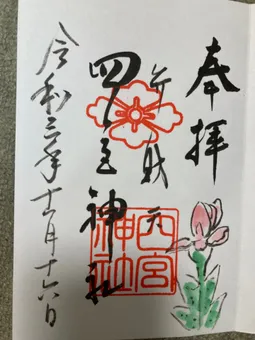 奉拝
弁財天
四宮神社
四宮神社
令和三年十一月十六日